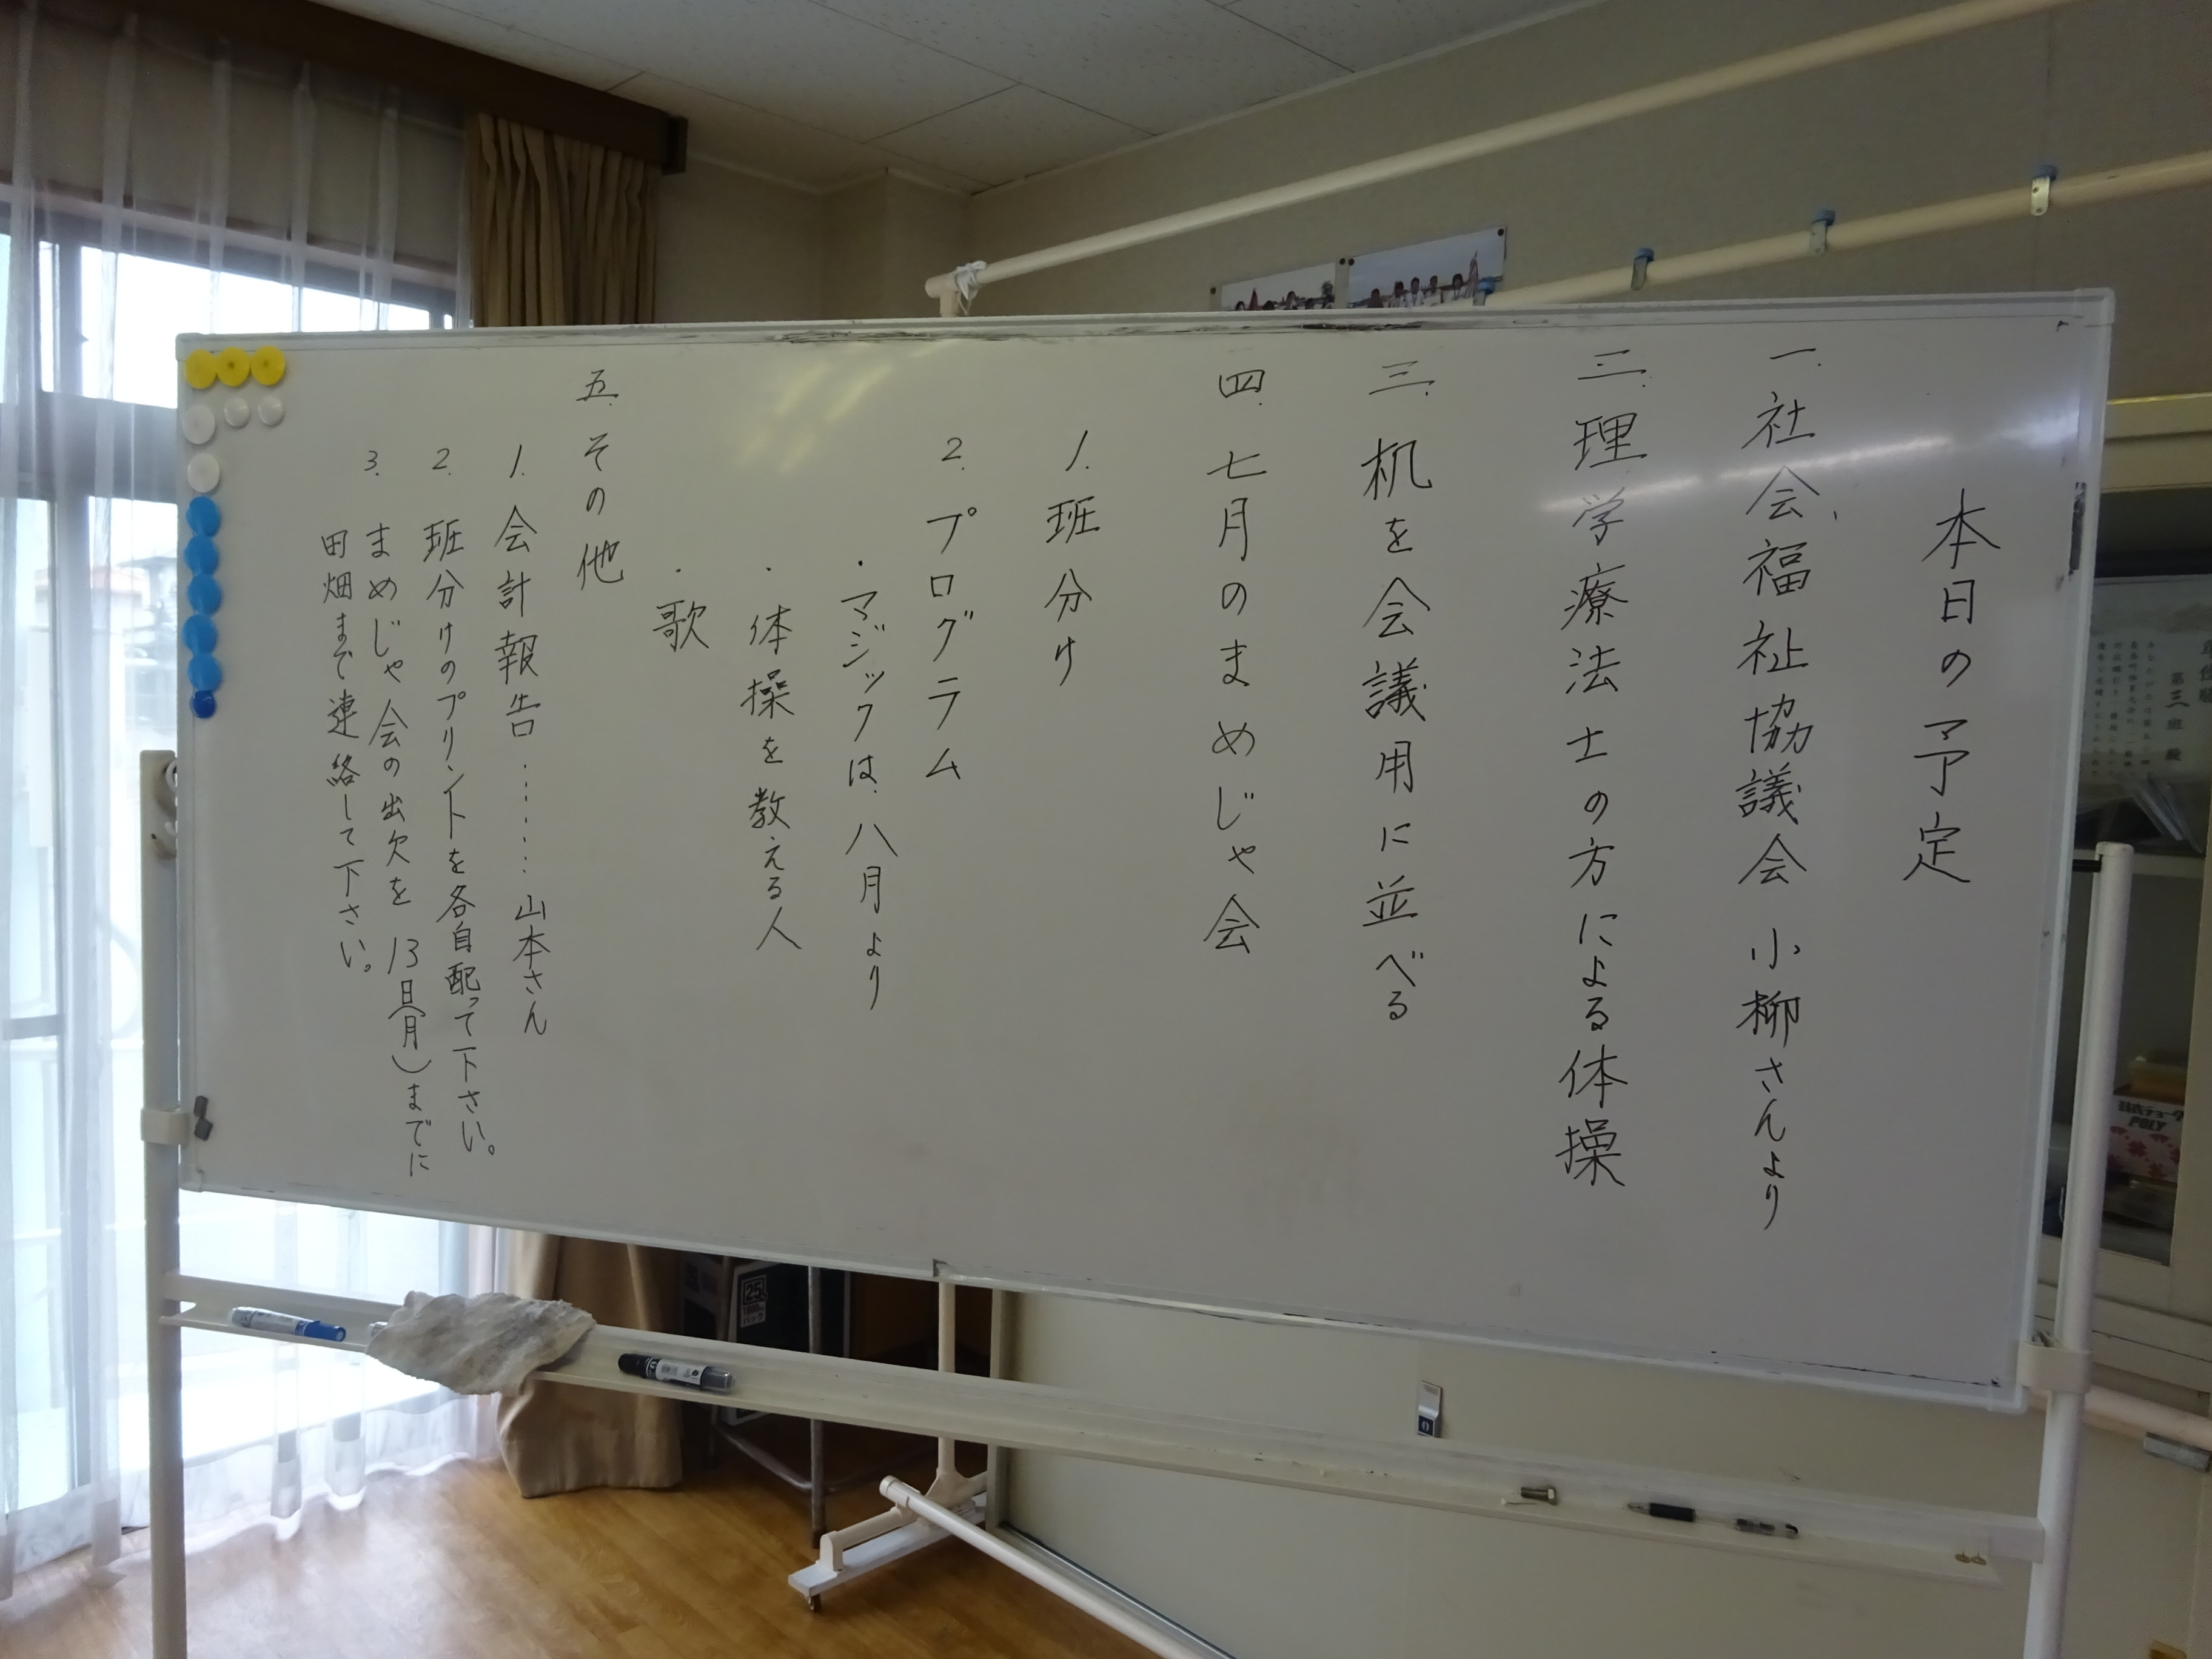 本日の予定
一. 社会福祉協議会 小柳さんより
二. 理学療法士の方による体操
三. 机を会議用に並べる
四. 七月のまめじゃ会
1. 班分け
2. プログラム
・マジックは、八月より
・体操を教える人
・歌
五. その他
1. 会計報告………山本さん
2. 班分けのプリントを各自配って下さい。
3. まめじゃ会の出欠を 13日(月)までに
田畑まで連絡して下さい。
第三班 殿
POLY
25